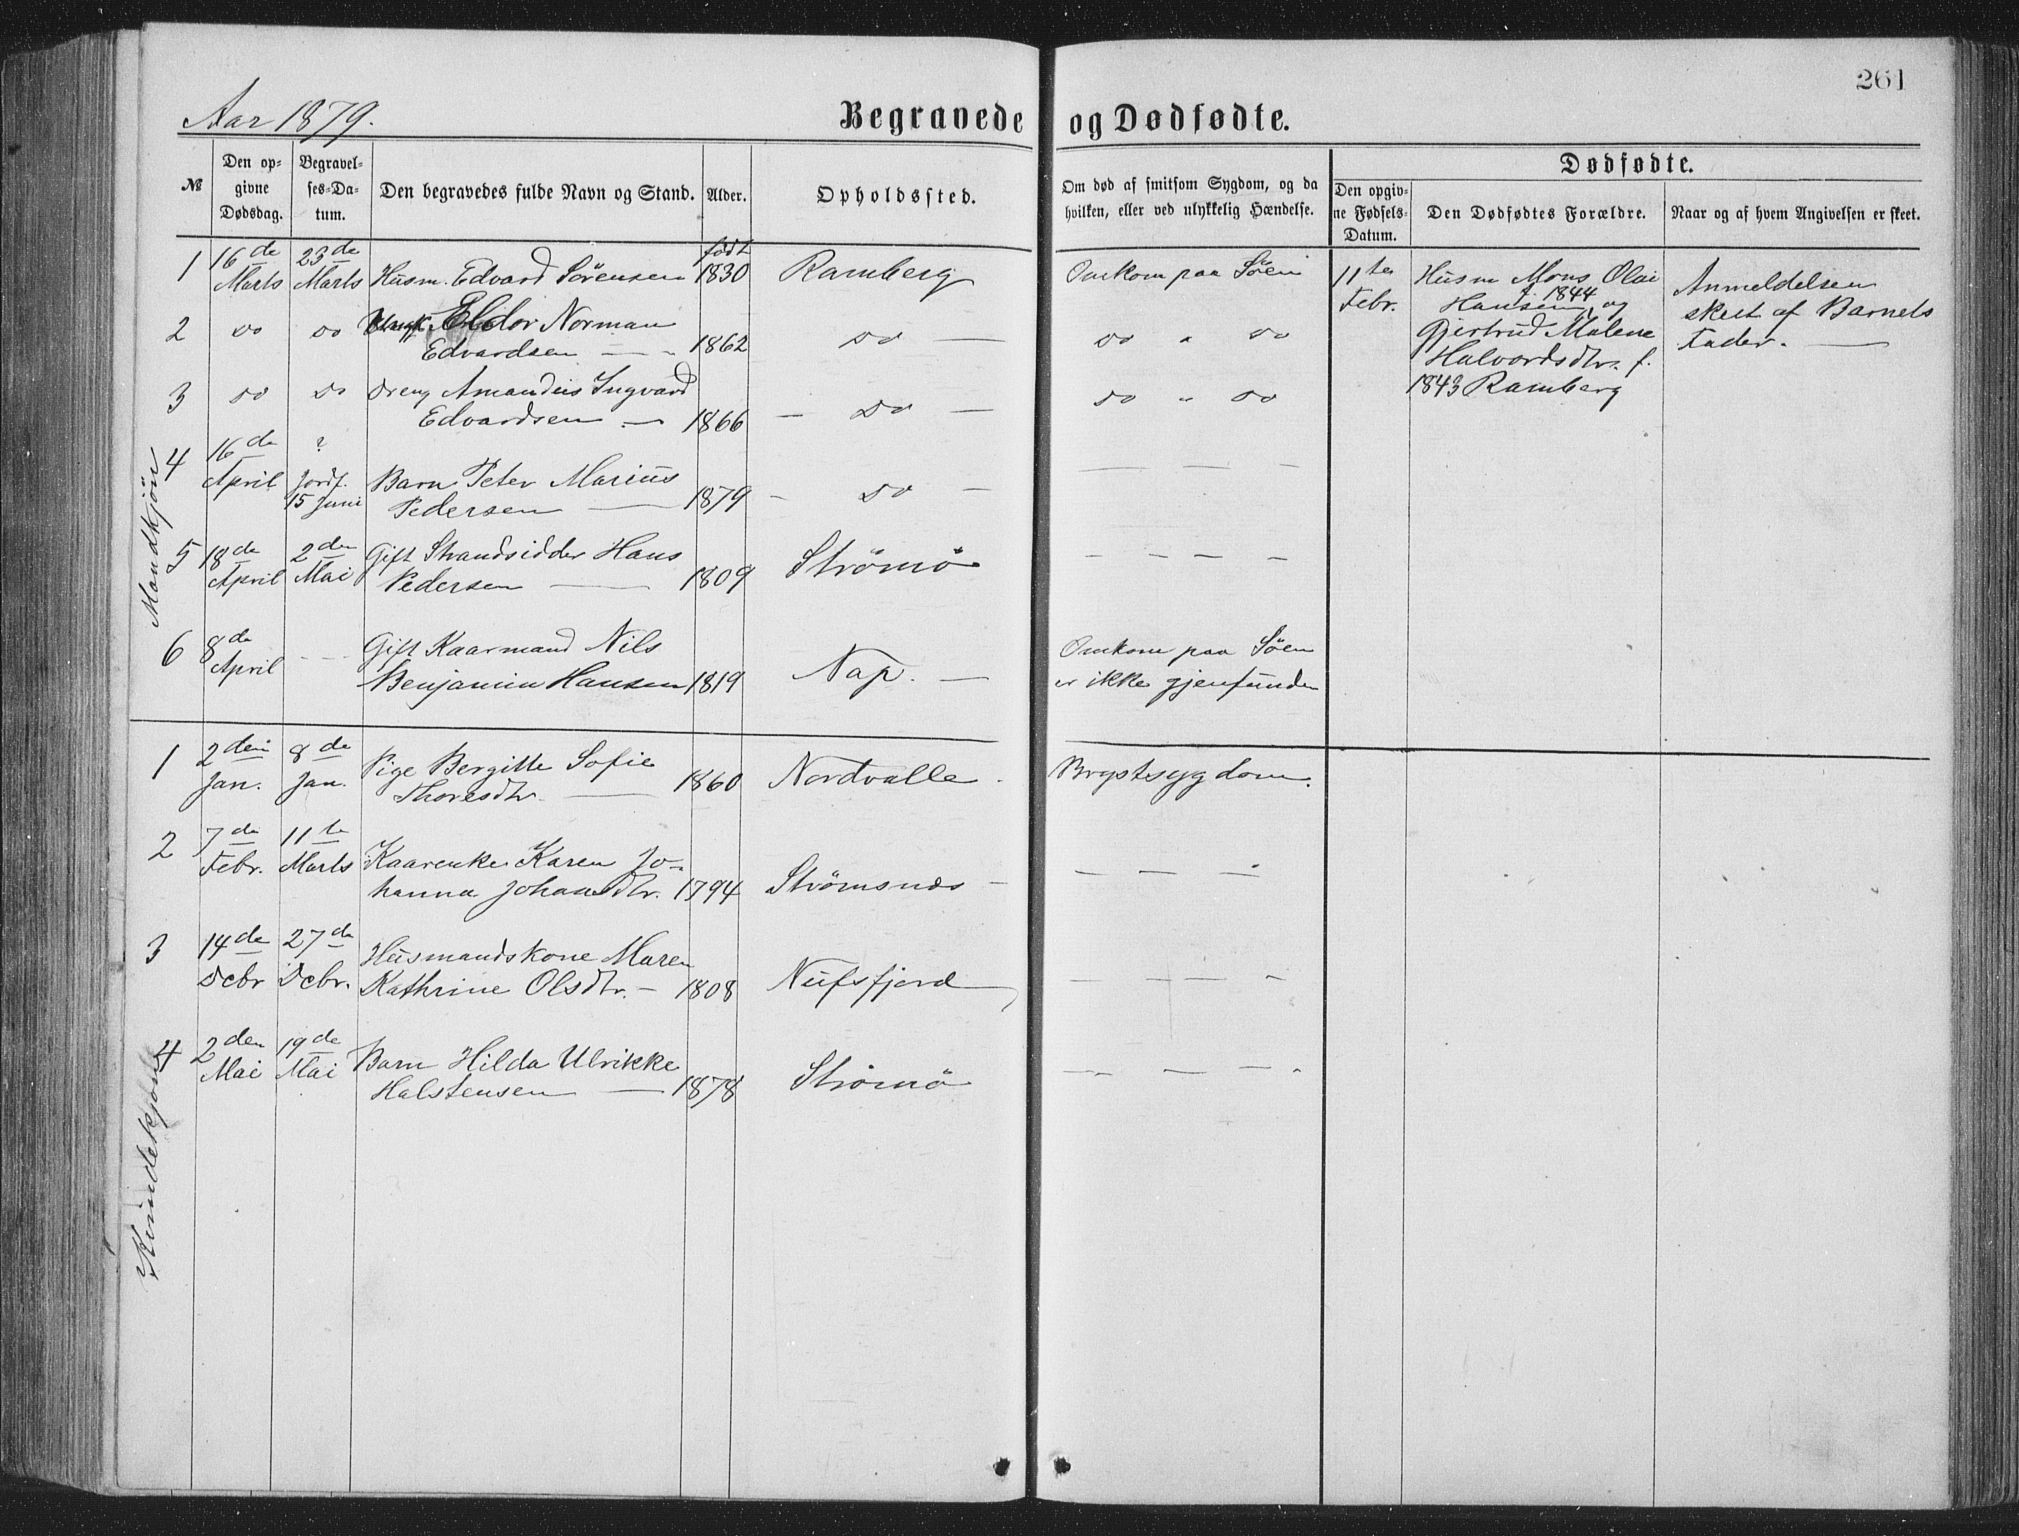 261
Aar 1879.
Begravede og Dødfødte.
№
Den op-
givne
Dødsdag.
Begravel-
ses-Da-
tum.
Den begravedes fulde Navn og Stand.
Alder.
Opholdssted.
Om død af smitsom Sygdom, og da
hvilken, eller ved ulykkelig Hændelse.
Dødfødte.
Den opgiv-
ne Fødsels-
Datum.
Den Dødfødtes Forældre.
Naar og af hvem Angivelsen er skeet.
Mandkjön
født
1 16de Marts 23de Marts Husm. Edvard Sörensen 1830 Ramberg Omkom paa Söen
2 do do Ungk. Eldor Norman
Edvardsen — 1862 do — do " do
3 do do Dreng Amandus Ingvard
Edvardsen — 1866 — do — do " do
4 16de April ? Jordf. 15 Juni Barn Peter Marius
Pedersen — 1879 - do - — — — —
5 18de April 2den Mai Gift Strandsidder Hans
Pedersen — 1809 Strömö — — — —
6 8de April — — Gift Kaarmand Nils
Benjamin Hansen 1819 Nap. — Omkom paa Söen
er ikke gjenfunden
11te
Febr.
Husm Mons Olai
Hansen f. 1844 og
Gjertrud Malene
Halvordsdtr. f.
1843 Ramberg
Anmeldelsen
skest af Barnets
Fader. —
Kvindekjön
1 2den Jan. 8de Jan. Pige Bergitte Sofie
Thoresdtr. — 1860 Nordvalle Brystsygdom.
2 7de Febr. 11te Marts Kaarenke Karen Jo-
hanna Johansdtr. 1794 Strömsnæs — — — —
3 14de Decbr 27de Decbr. Husmandskone Maren
Kathrine Olsdtr. — 1808 Nufsfjord — — — —
4 2den Mai 19de Mai Barn Hilda Ulrikke
Halstensen — 1878 Strömö — — — —